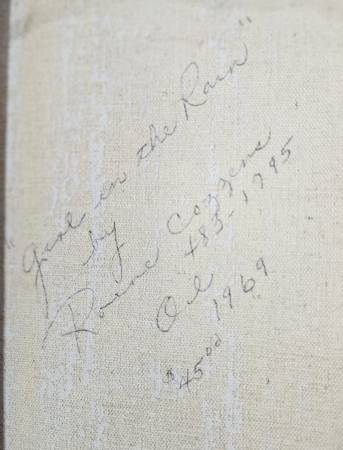 "Girl in the Rain"
by
Cozzens
483-1795
Oil 1969
$45.00